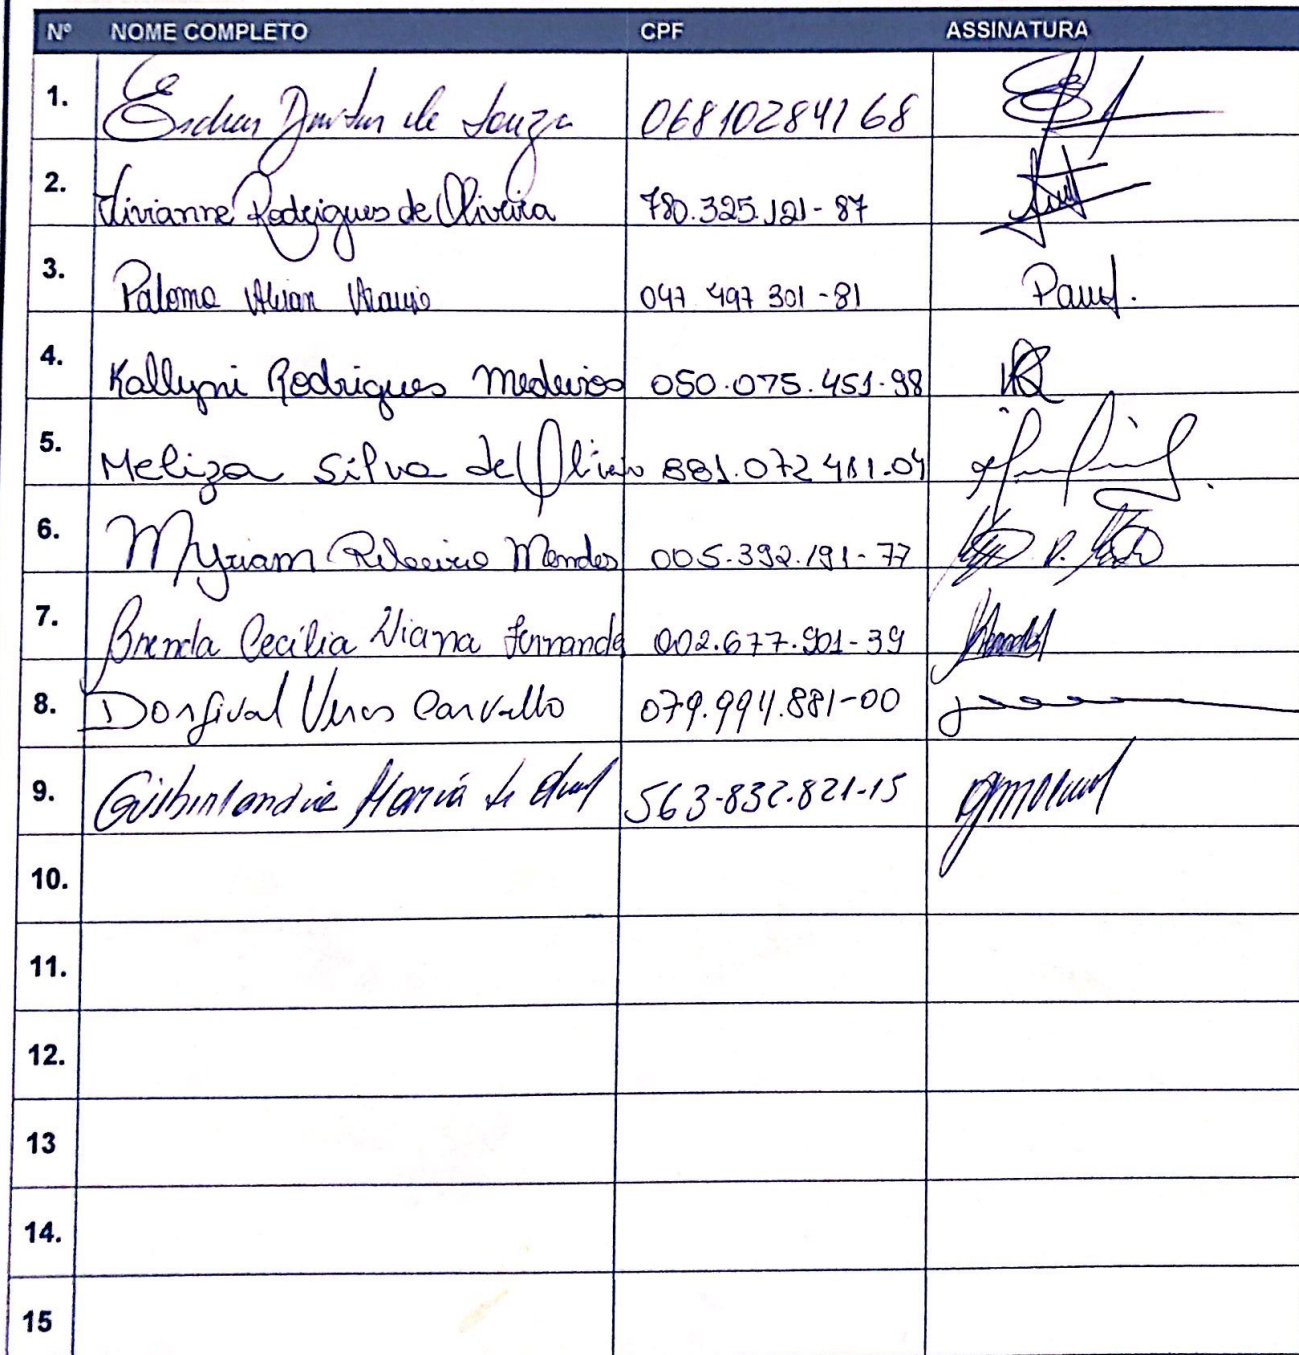 Nº NOME COMPLETO CPF ASSINATURA
1. de Souza 06810284168
2. Vivianne Rodrigues de Oliveira 780.325.121-87
3. Paloma Araujo 047 497 301-81
4. Kallyni Rodrigues Medeiros 050.075.451-98
5. Meliza Silva de 881.072 481.04
6. Myriam Ribeiro Mendes 005.392.191-77
7. Brenda Cecília Viana Fernandes 002.677.901-39
8. Dorgival Veras Carvalho 079.994.881-00
9. Maria 563-832.821-15
10.
11.
12.
13
14.
15